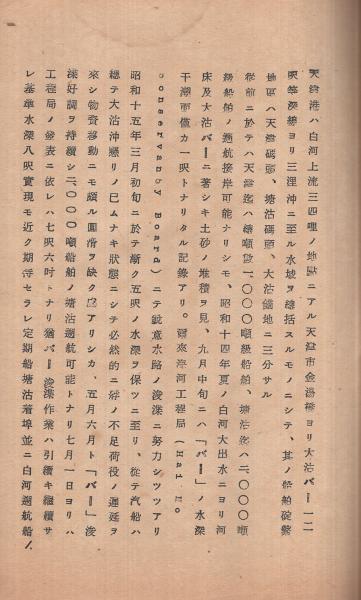 天津港ハ白河上流三四哩ノ地點ニアル天津市金湯橋ヨリ大沽バー一二
呎等深線ヨリ三浬沖ニ至ル水域ヲ總括スルモノニシテ、其ノ船舶碇繋
地區ハ天津碼頭、塘沽碼頭、大沽錨地ニ三分サル
從前ニ於テハ天津迄ハ總噸數一、〇〇〇噸級船舶、塘沽迄ハ二、〇〇〇噸
級船舶ノ遡航接岸可能ナリシモ、昭和十四年夏ノ白河大出水ニヨリ河
床及大沽バーニ著シキ土砂ノ堆積ヲ見、九月中旬ニハ「バー」ノ水深
干潮面僅カ一呎トナリタル記錄アリ。爾來海河工程局(Hai Ho
Conservancy Board)ニテ銳意水路ノ浚渫ニ努力シツツアリ
昭和十五年三月初旬ニ於テ漸ク五呎ノ水深ヲ保ツニ至リ、從テ汽船ハ
總テ大沽沖懸リノ已ムナキ狀態ニシテ必然的ニ艀ノ不足荷役ノ遲延ヲ
來シ物資移動ニモ頗ル圓滑ヲ缺ク アリシカ、五月六月ト「バー」浚
渫好調ヲ持續シ二、〇〇〇噸船舶ノ塘沽遡航可能トナリ七月一日ヨリハ
工程局ノ發表ニ依レハ七呎六吋トナリ猶バー浚渫作業ハ引續キ繼續サ
レ基準水深八呎實現モ近ク期待セラレ定期船塘沽着埠並ニ白河遡航船ノ